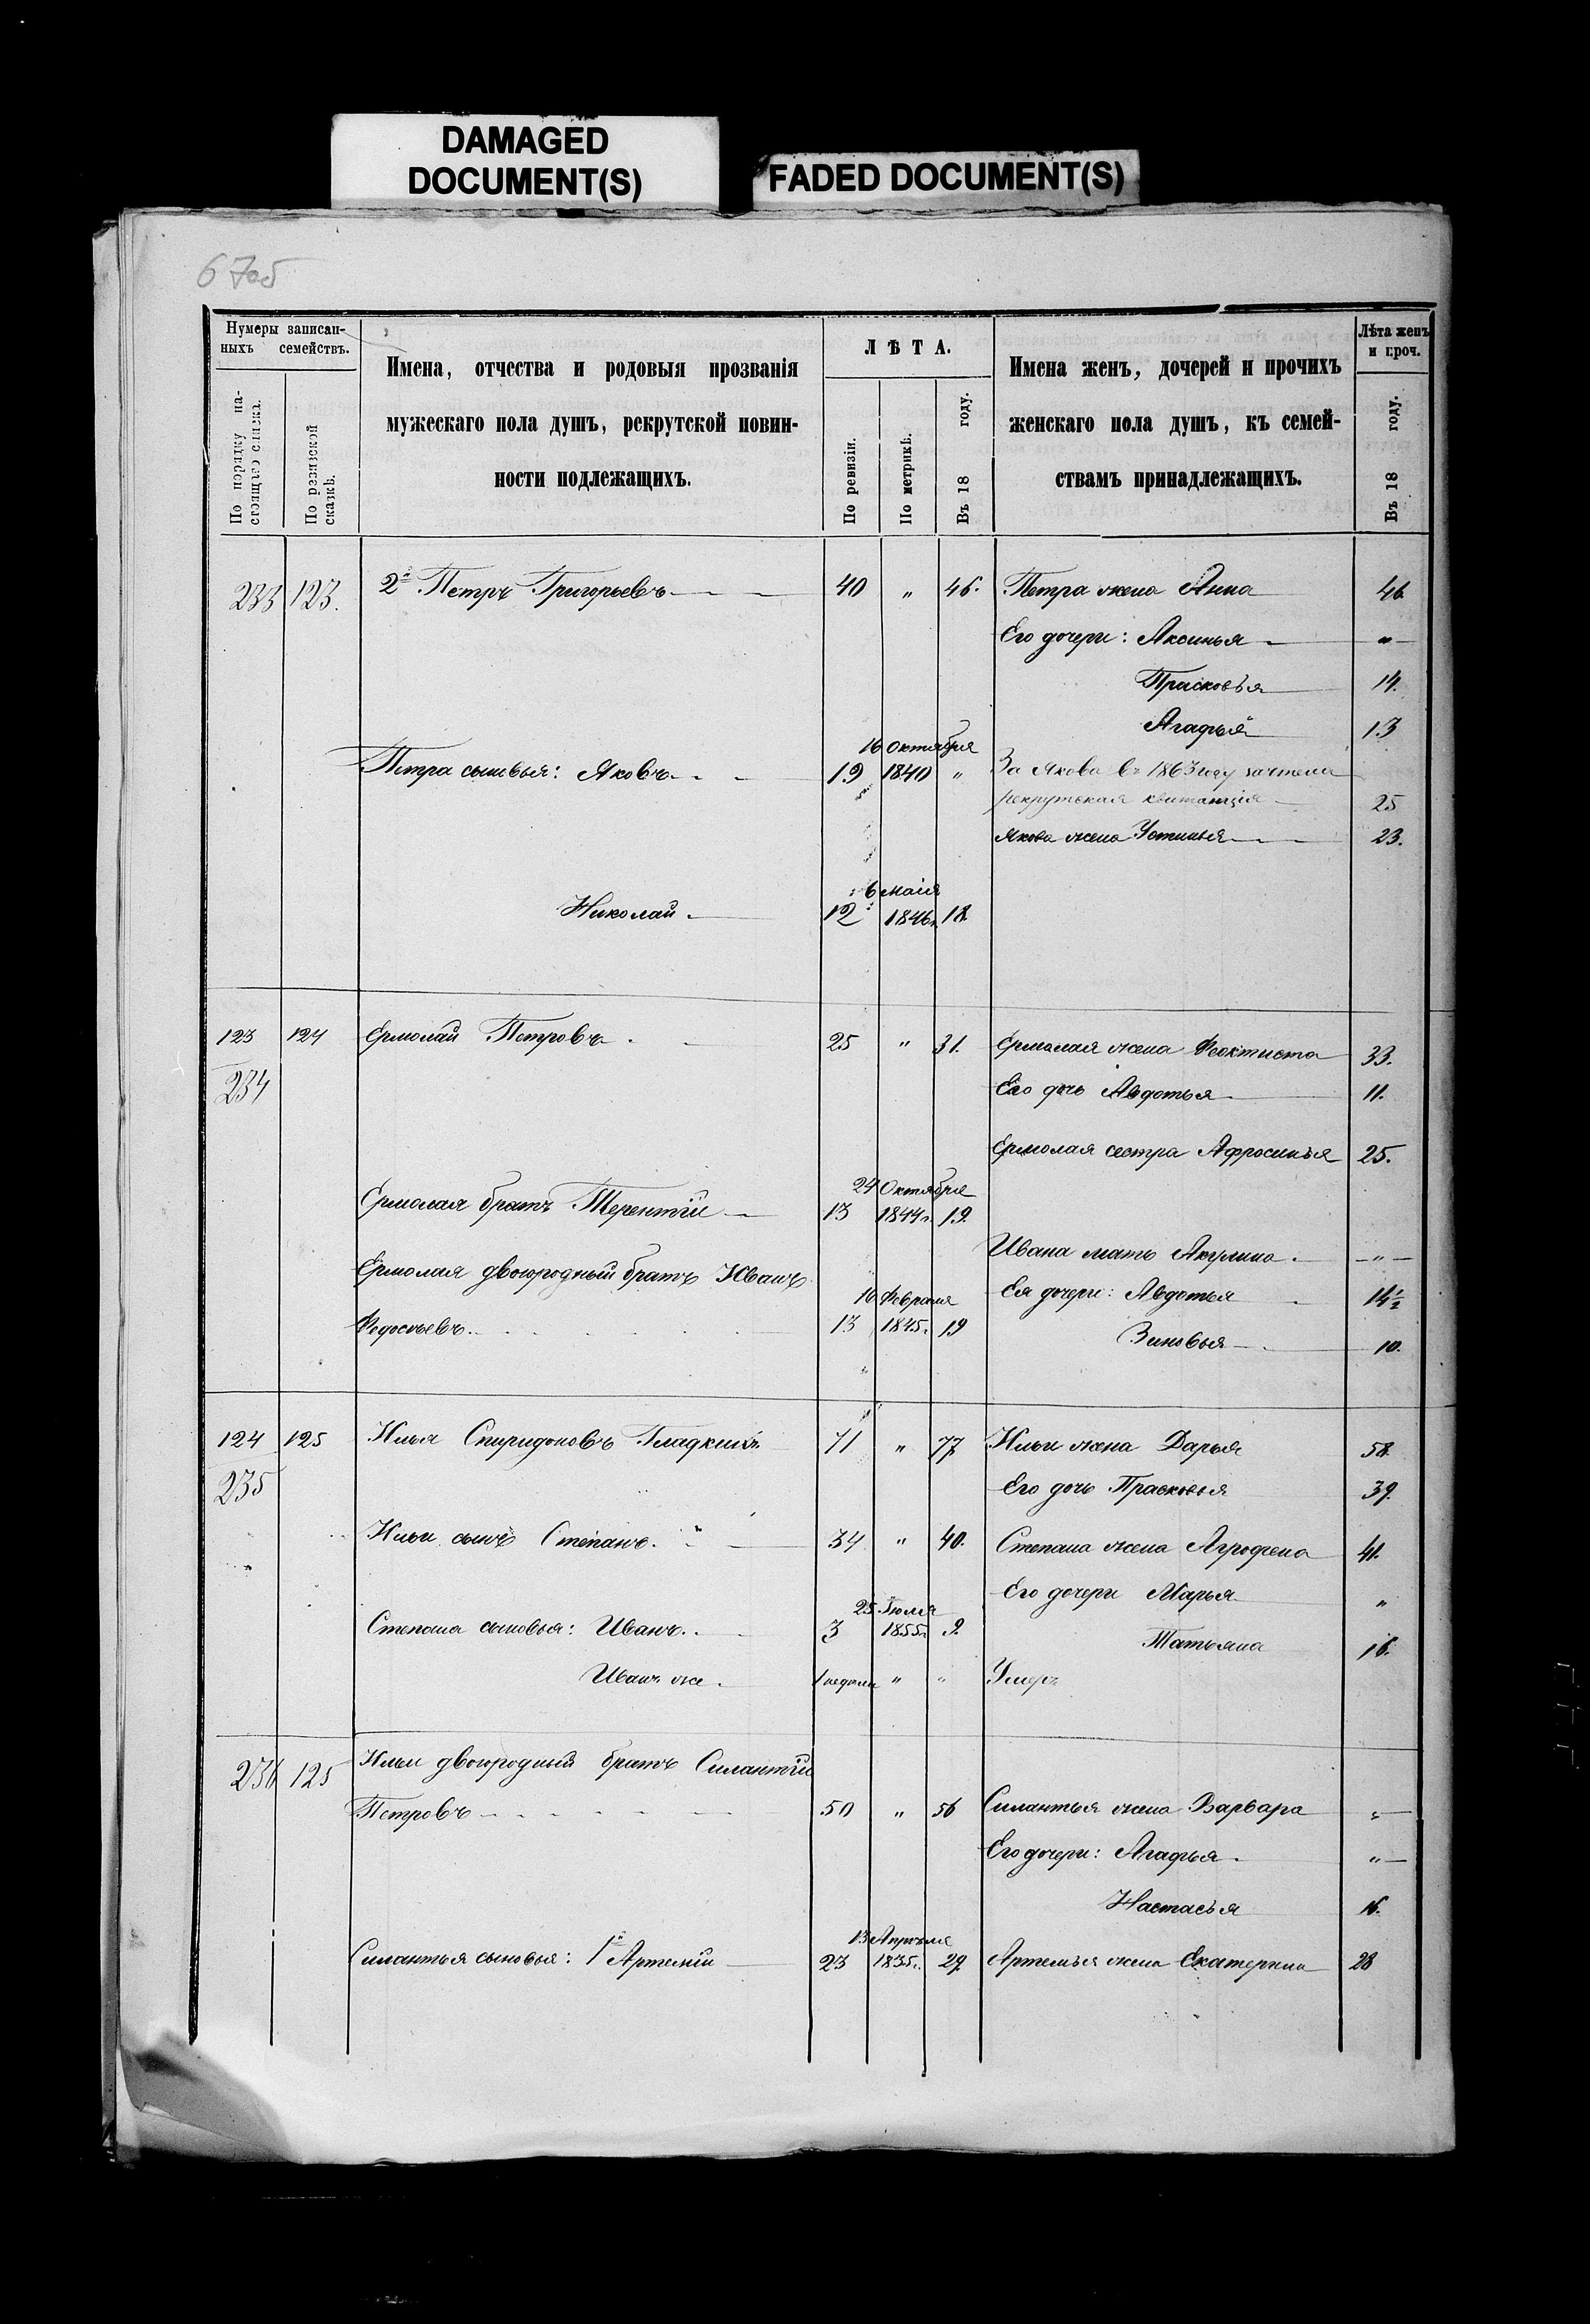 DAMAGED
DOCUMENT(S)
FADED DOCUMENT(S)
67об
Нумеры записан-
ныхъ семействъ.
По порядку на-
стоящаго списка.
По ревизской
сказкѣ.
Имена, отчества и родовыя прозванія
мужескаго пола душъ, рекрутской повин-
ности подлежащихъ.
ЛѢТА.
По ревизіи.
По метрикѣ.
Въ 18 году.
Имена женъ, дочерей и прочихъ
женскаго пола душъ, къ семей-
ствамъ принадлежащихъ.
Лѣта женъ
и проч.
Въ 18 году.
233 123. 2й Петръ Григорьевъ 40 " 46. Петра жена Анна 46.
Его дочери: Аксинья "
Прасковья 14.
Агафья 13
16 Октября
Петра сыновья: Яковъ 19 1840 " За Якова въ 1863 году зачтена
рекрутская квитанція 25
Якова жена Устинья 23.
6 маія
Николай 12 1846г. 18.
123 124 Ермолай Петровъ 25 " 31. Ермолая жена Феоктиста 33.
234 Его дочь Авдотья 11.
Ермолая сестра Афросинья 25.
24 Октября
Ермолая братъ Терентій 13 1844г. 19.
Ивана мать Акулина "
Ермолая двоюродный братъ Иванъ
Ея дочери: Авдотья 14½
16 Февраля
Федосѣевъ 13 1845. 19
Зиновья 10.
124 125 Илья Спиридоновъ Гладкихъ 71 " 77 Ильи жена Дарья 58.
235 Его дочь Прасковья 39.
Ильи сынъ Степанъ. 34 " 40. Степана жена Агрофена 41.
Его дочери Марья "
25 Іюля
Степана сыновья: Иванъ. 3 1855г. 9.
Татьяна 16.
Иванъ же. 1 недѣли " " Умеръ
236 125 Ильи двоюродный братъ Силантій
Петровъ 50 " 56 Силантья жена Варвара "
Его дочери: Агафья. "
Настасья 16.
13 Апрѣля
Силантья сыновья: 1й Артемій 23 1835г. 29. Артемья жена Екатерина 28